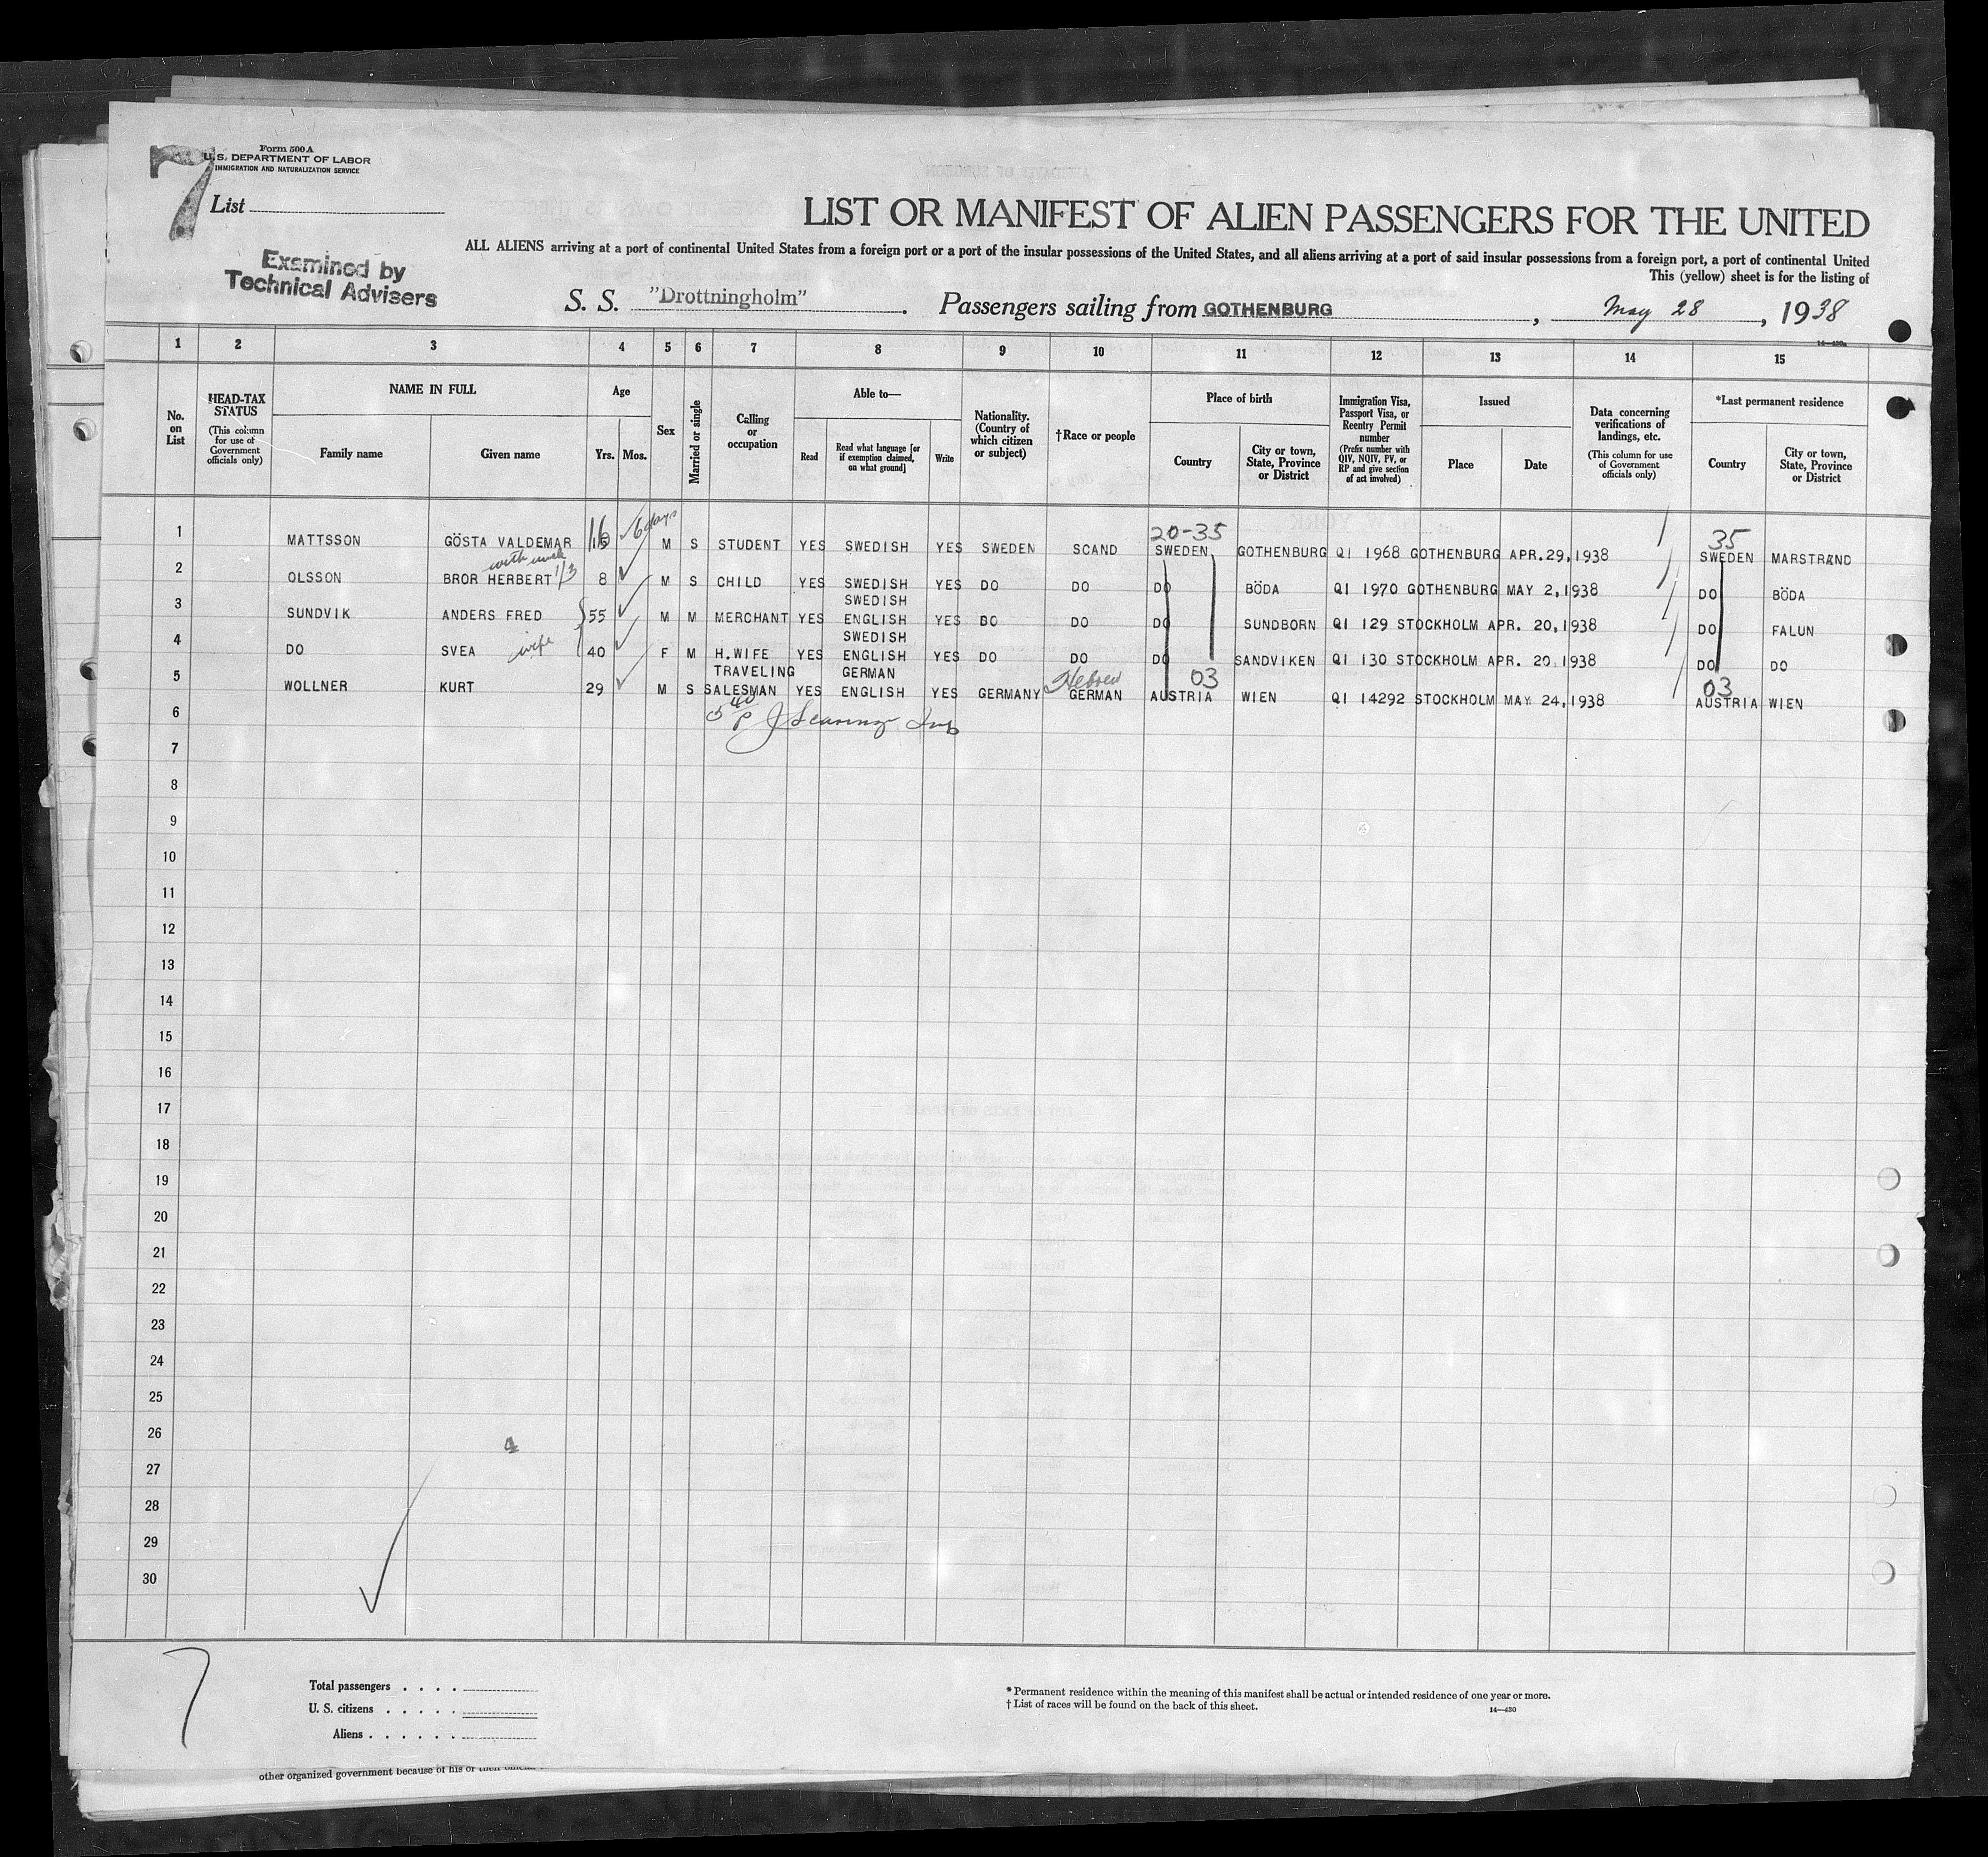 Form 500 A
U. S. DEPARTMENT OF LABOR
IMMIGRATION AND NATURALIZATION SERVICE
7
List
Examined by
Technical Advisers
LIST OR MANIFEST OF ALIEN PASSENGERS FOR THE UNITED
ALL ALIENS arriving at a port of continental United States from a foreign port or a port of the insular possessions of the United States, and all aliens arriving at a port of said insular possessions from a foreign port, a port of continental United
This (yellow) sheet is for the listing of
S. S. "Drottningholm". Passengers sailing from GOTHENBURG, May 28, 1938
14—430a
1 2 3 4 5 6 7 8 9 10 11 12 13 14 15
No. on List
HEAD-TAX STATUS
(This column for use of Government officials only)
NAME IN FULL
Family name
Given name
Age
Yrs. Mos.
Sex
Married or single
Calling or occupation
Able to—
Read
Read what language [or if exemption claimed, on what ground]
Write
Nationality. (Country of which citizen or subject)
†Race or people
Place of birth
Country
City or town, State, Province or District
Immigration Visa, Passport Visa, or Reentry Permit number
(Prefix number with QIV, NQIV, PV, or RP and give section of act involved)
Issued
Place
Date
Data concerning verifications of landings, etc.
(This column for use of Government officials only)
*Last permanent residence
Country
City or town, State, Province or District
6 days
20-35
35
1 MATTSSON GÖSTA VALDEMAR 16 M S STUDENT YES SWEDISH YES SWEDEN SCAND SWEDEN GOTHENBURG QI 1968 GOTHENBURG APR.29,1938 SWEDEN MARSTRAND
with uncle
1/3
2 OLSSON BROR HERBERT 8 M S CHILD YES SWEDISH YES DO DO DO BÖDA QI 1970 GOTHENBURG MAY 2,1938 DO BÖDA
SWEDISH
3 SUNDVIK ANDERS FRED 55 M M MERCHANT YES ENGLISH YES DO DO DO SUNDBORN QI 129 STOCKHOLM APR. 20,1938 DO FALUN
SWEDISH
4 DO SVEA wife 40 F M H.WIFE YES ENGLISH YES DO DO DO SANDVIKEN QI 130 STOCKHOLM APR. 20.1938 DO DO
TRAVELING GERMAN Hebrew 03 03
5 WOLLNER KURT 29 M S SALESMAN YES ENGLISH YES GERMANY GERMAN AUSTRIA WIEN QI 14292 STOCKHOLM MAY 24,1938 AUSTRIA WIEN
6
7
8
9
10
11
12
13
14
15
16
17
18
19
20
21
22
23
24
25
26
4
27
28
29
30
7
Total passengers
U. S. citizens
Aliens
* Permanent residence within the meaning of this manifest shall be actual or intended residence of one year or more.
† List of races will be found on the back of this sheet.
14—430
other organized government because of his or their